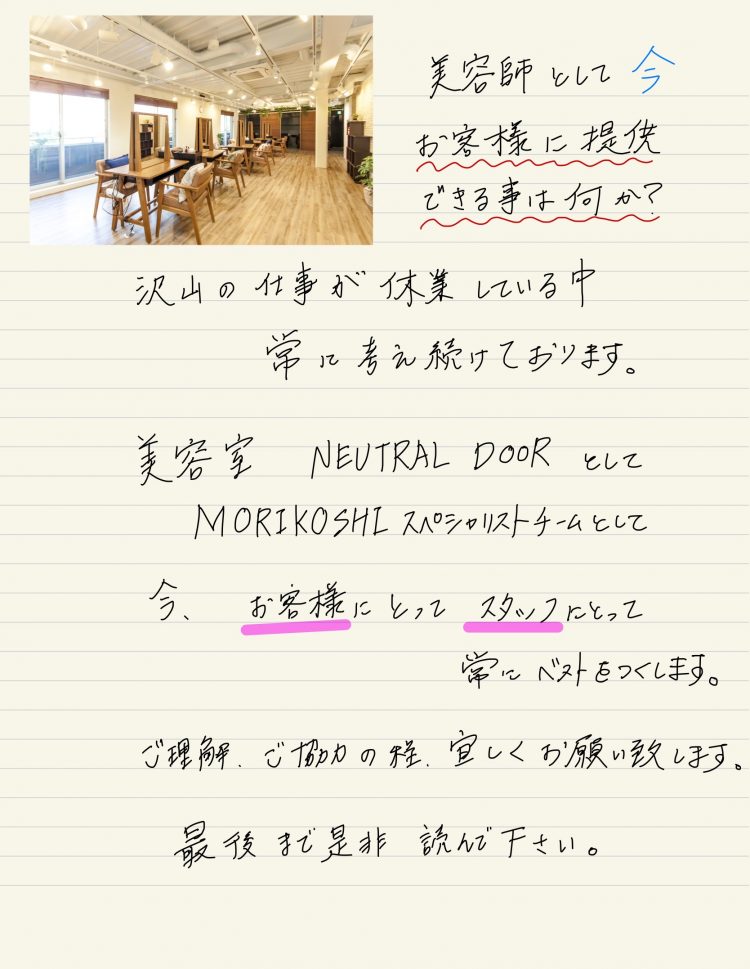 美容師として今
お客様に提供
できる事は何か?
沢山の仕事が休業している中
常に考え続けております。
美容室 NEUTRAL DOORとして
MORIKOSHIスペシャリストチームとして
今、お客様にとってスタッフにとって
常にベストをつくします。
ご理解、ご協力の程、宜しくお願い致します。
最後まで是非読んで下さい。